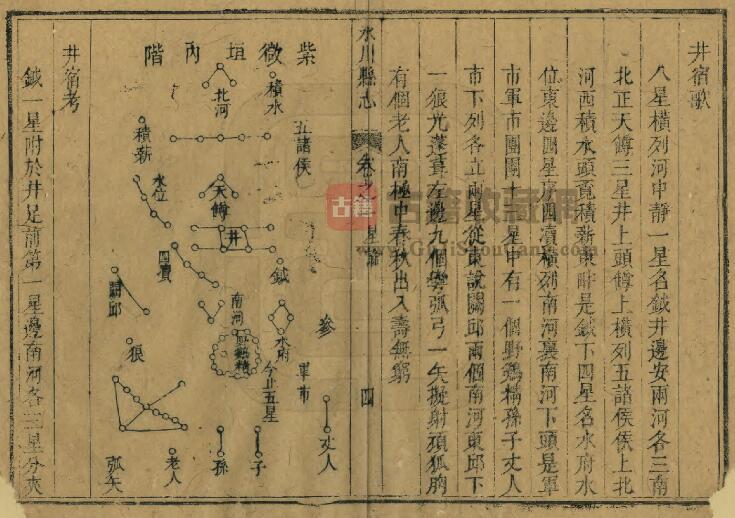 井宿歌
八星橫列河中靜一星名鉞井邊安兩河各三南
北正天罇三星井上頭罇上橫列五諸侯侯上北
河西積水頭覔積薪東畔是鉞下四星名水府水
位東邊四星序四瀆橫列南河裏南河下頭是軍
市軍市團圓十三星中有一個野鷄精孫子丈人
市下列各立兩星從東說闕邱兩個南河東邱下
一狼光蓬茸左邊九個彎弧弓一矢擬射頑狼胸
有個老人南極中春秋出入壽無窮
永川縣志
卷之
星
四
紫微垣內階
積水
北河
五諸侯
積薪
水位
天罇
井
四瀆
鉞
參
闕邱
南河
水府
野鷄精
今止五星
軍市
狼
丈人
子
孫
老人
弧矢
井宿考
鉞一星附於井足前第一星邊南河各三星分夾
古籍
古籍收藏網
www.GuJiShouCang.com